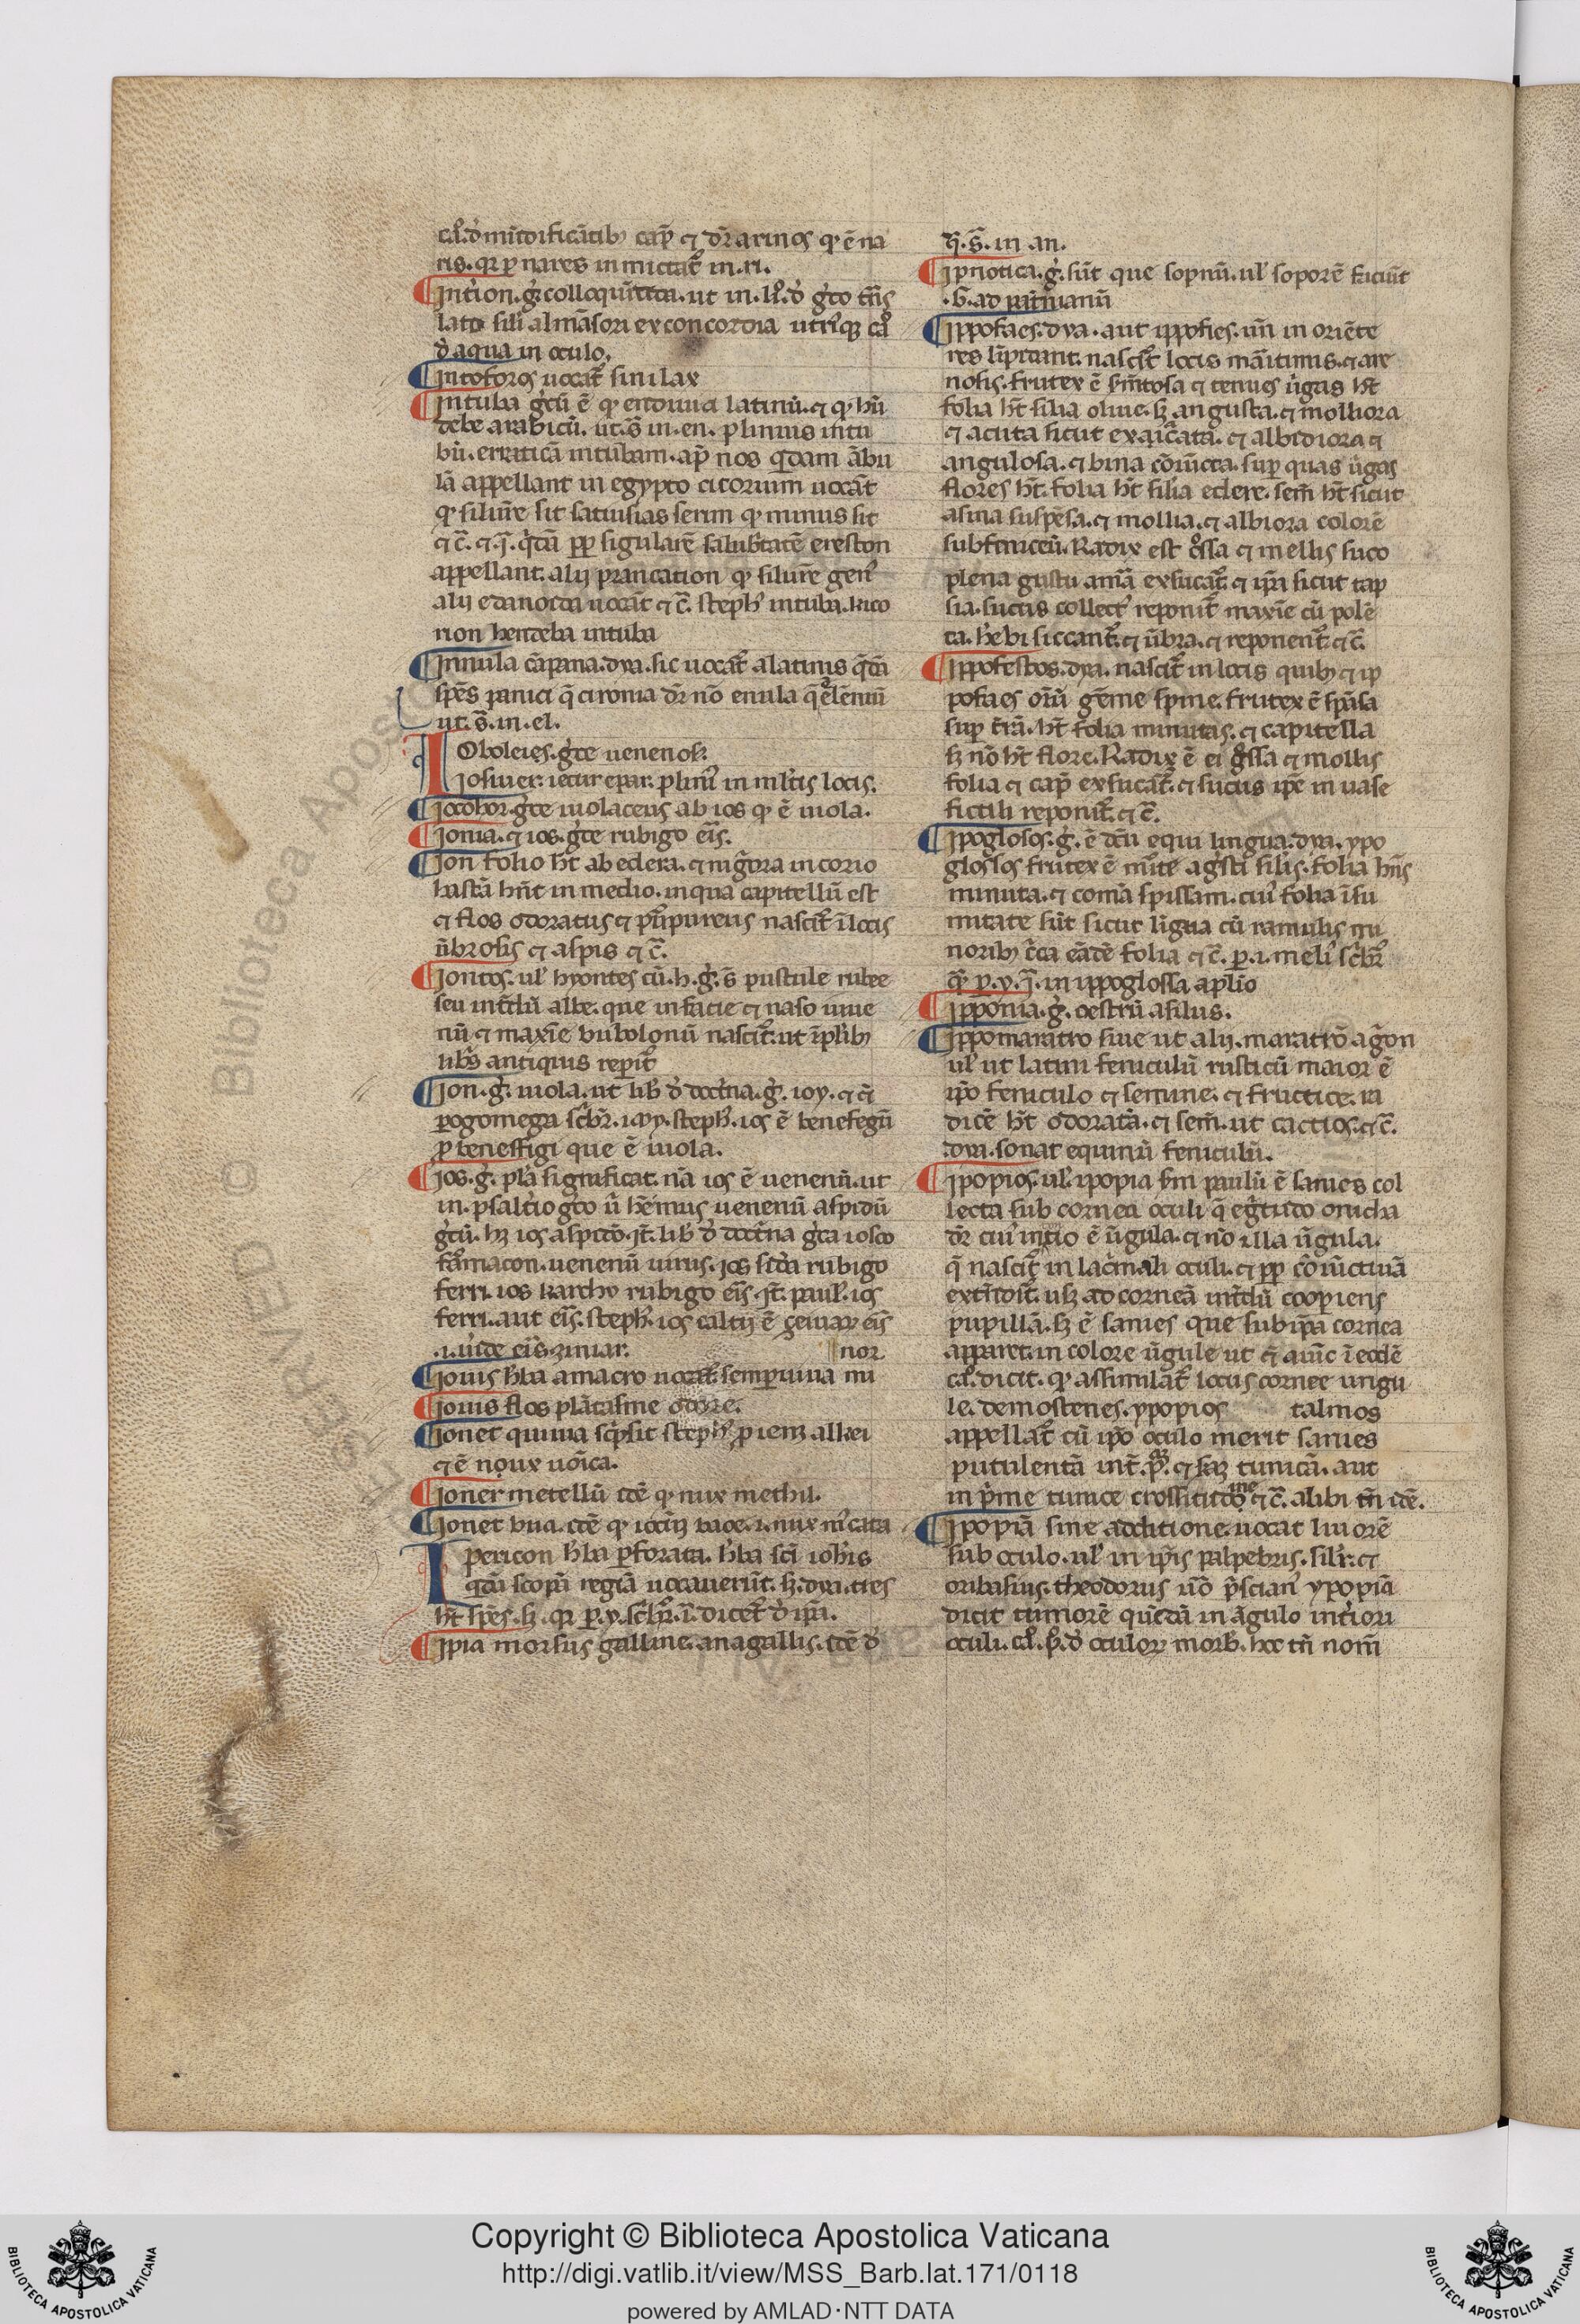 ca. d' mūdificātib; cap̄. ⁊ dr̄ a rinos qᵈ ē na
ris. qr̄ ꝑ nares in mictat᷑ in .ri.
¶ Int̄ion. g̊. colloquītida. ut in. lī. d' gͨo trās
lato filii almāsori ex concordia utriꝰq; ca.
d' aqua in oculo.
¶ Intoforos uocat᷑ similax
¶ Intuba gͨū ē qᵈ endiuia latinū. ⁊ qᵈ hū
debe arabicū. ut. s̄. in. en. plinius intu
bū. erraticā intubam. ap̄ nos qdam ābu
lā appellant in egypto citorium uocāt
qᵈ siluēe sit satiuū as serim qᵈ minus sit
appellant. alij prancation qᵈ siluēe genꝰ
alij edanorda uocāt ⁊ c̄. stephꝰ intuba. kico
rion hendeba intuba
¶ Innula cāpana. dya. sic uocat᷑ a latinis q̄dā
spēs panici q̄ cironia dr̄ nō enula q̄ elēniū
ut. s̄. in. el.
Ioboleies. gͨe uenenosī.
iosiuer. iecur epar. pliniꝰ in mltis locis.
¶ iocohor. gͨe uiolaceus ab ios qᵈ ē uiola.
¶ ionia. ⁊ ios. gͨe rubigo eīs.
¶ ion folio ht̄ ab edera. ⁊ nig̊ora in corio
hastā hn̄t in medio. in qua capitellū est
⁊ flos odoratus ⁊ pūpureus nascit᷑ ī locis
ūbrosis ⁊ aspis ⁊ c̄.
¶ iontos. ul' hyontes cū. h. g̊. s̄ pustule rubee
seu int̄dū albe. que in facie ⁊ naso iuue
nū ⁊ maxīe bubolonū nascit᷑. ut ī plib;
libs antiquis repit᷑
¶ ion. g̊. uiola. ut lib' d' doct̄na. g̊. ioy. ⁊ c̄i
ꝑ ogomega scbr̄. ioy. stephꝰ. ios ē benefegū
ꝓ beneffigi que ē uiola.
¶ ios. g̊. plā significat. nā ios ē uenenū. ut
in. psaltio gͨo ū hēmus uenenū aspidū
gͨū. hȝ ios aspidō. It̄. lib' d' doct̄na gͨa iosco
farmacon. uenenū uirus. ios sida rubigo
ferri. ios karchu rubigo eīs. It̄. paulꝰ. ios
ferri. aut eīs. stephꝰ. ios caltij ē
.i. uide eīs. ziniar. nor
¶ iouis hba a macro uocat᷑. semꝑuiua mi
¶ iouis flos
¶ ionet quiuia scpsit stephꝰ ꝓ iemȝ alkei
⁊ ē noux uoīca.
¶ ioner metellū idē qᵈ nux methil.
¶ ionet bua. idē qᵈ
Ipericon hba ꝑforata. hba scī iohīs
qdā scopā regiā uocauerūt. sȝ. dya. tres
ht̄ spēs. sȝ. qr̄ ꝑ. y. scbr̄. ī. dicet᷑ d' ip̄a.
¶ Ipia morsus galline. anagallis. idē d'
q̄. s̄. in an.
¶ Ipnotica. g̊. sūt que sopnū. ul' soporē faciūt
¶ Ippofaes. dya. aut ippofies. un̄ in oriēte
nosis. frutex ē sm̄tosa ⁊ tenues ūgas ht̄
folia ht̄ filia oliue. sȝ angusta. ⁊ molliora
⁊ acuta sicut exaīcata. ⁊ albidiora ⁊
angulosa. ⁊ bina cōiūcta. suꝑ quas ūgas
flores ht̄. folia ht̄ filia edere. sem̄ ht̄ sicut
asina suspēsa. ⁊ mollia. ⁊ albiora colorē
subfeniceū. Radix est gͦssa ⁊ mellis suco
plena gustu amā exsucat᷑. ⁊ ip̄a sicut tap
sia. sucus collectꝰ reponit᷑ maxīe cū polē
ta. hebi siccant᷑. ⁊ ūbra. ⁊ reponent᷑. ⁊ c̄.
¶ Ippofestos. dya. nascit᷑ in locis quib; ⁊ ip
pofaes oīū gēme spine. frutex ē spāsa
suꝑ trā. ht̄ folia minutas. ⁊ capitella
sȝ nō ht̄ flore. Radix ē ei gͦssa ⁊ mollis
folia ⁊ cap̄ exsucat᷑. ⁊ sucus ip̄e in uase
fictili reponit᷑. ⁊ c̄.
¶ Ipoglosos. g̊. ē dcū equi lingua. dya. ypo
glossos frutex ē mīte agsti filis. folia hn̄s
minuta. ⁊ comā spissam. cuiꝰ folia ī su
mitate sūt sicut lingua cū ramulis mi
norib; cca eādē folia ⁊ c̄. ꝑ. i. meliꝰ scbr̄
qᵃ ꝑ. y. in ippoglossa aplio
¶ Ipponia. g̊. oestrū asilus.
¶ Ippomaratro siue ut alij. maratrō ag̊on
ul' ut latini feniculū rusticū maior ē
ip̄o feniculo ⁊ semine. ⁊ fructice. ra
dicē ht̄ odoratā. ⁊ sem̄. ut cactios. ⁊ c̄.
dya. sonat equinū feniculū.
¶ Ipopios. ul'. ipopia sm̄ paulū ē sanies col
lecta sub cornea oculi q̄ eg̊tudo onicha
dr̄ cuiꝰ initio ē ūgula. ⁊ nō illa ūgula.
q̄ nascit᷑ in lacͥmali oculi. ⁊ pp̄ cōiūctiuā
extēdit᷑. usȝ ad corneā int̄dū coopiens
pupillā. sȝ ē sanies que sub ip̄a cornea
apparet. in colore ūgule ut ⁊ auic̄ ī eodē
ca. dicit. qᵈ assimilat᷑ locus cornee ungu
le. demostenes. ypopios talmos
appellat᷑ cū ip̄o oculo inerit sanies
putulentā int̄. pᵃ. ⁊ scdaȝ tunicā. aut
in pͥme tunice crossitudīe ⁊ c̄. alibi tn̄ idē.
¶ Ipopiā sine additione. uocat liuorē
sub oculo. ul' in ip̄is palpebris. silr. ⁊
oribasius. theodorus uō pscianꝰ ypopiā
dicit tumorē quēdā in āgulo int̄iori
oculi. ca. p̄. d' oculoꝝ morb. hoc tn̄ nom̄
Copyright © Biblioteca Apostolica Vaticana
http://digi.vatlib.it/view/MSS_Barb.lat.171/0118
powered by AMLAD·NTT DATA
BIBLIOTECA APOSTOLICA VATICANA
BIBLIOTECA APOSTOLICA VATICANA